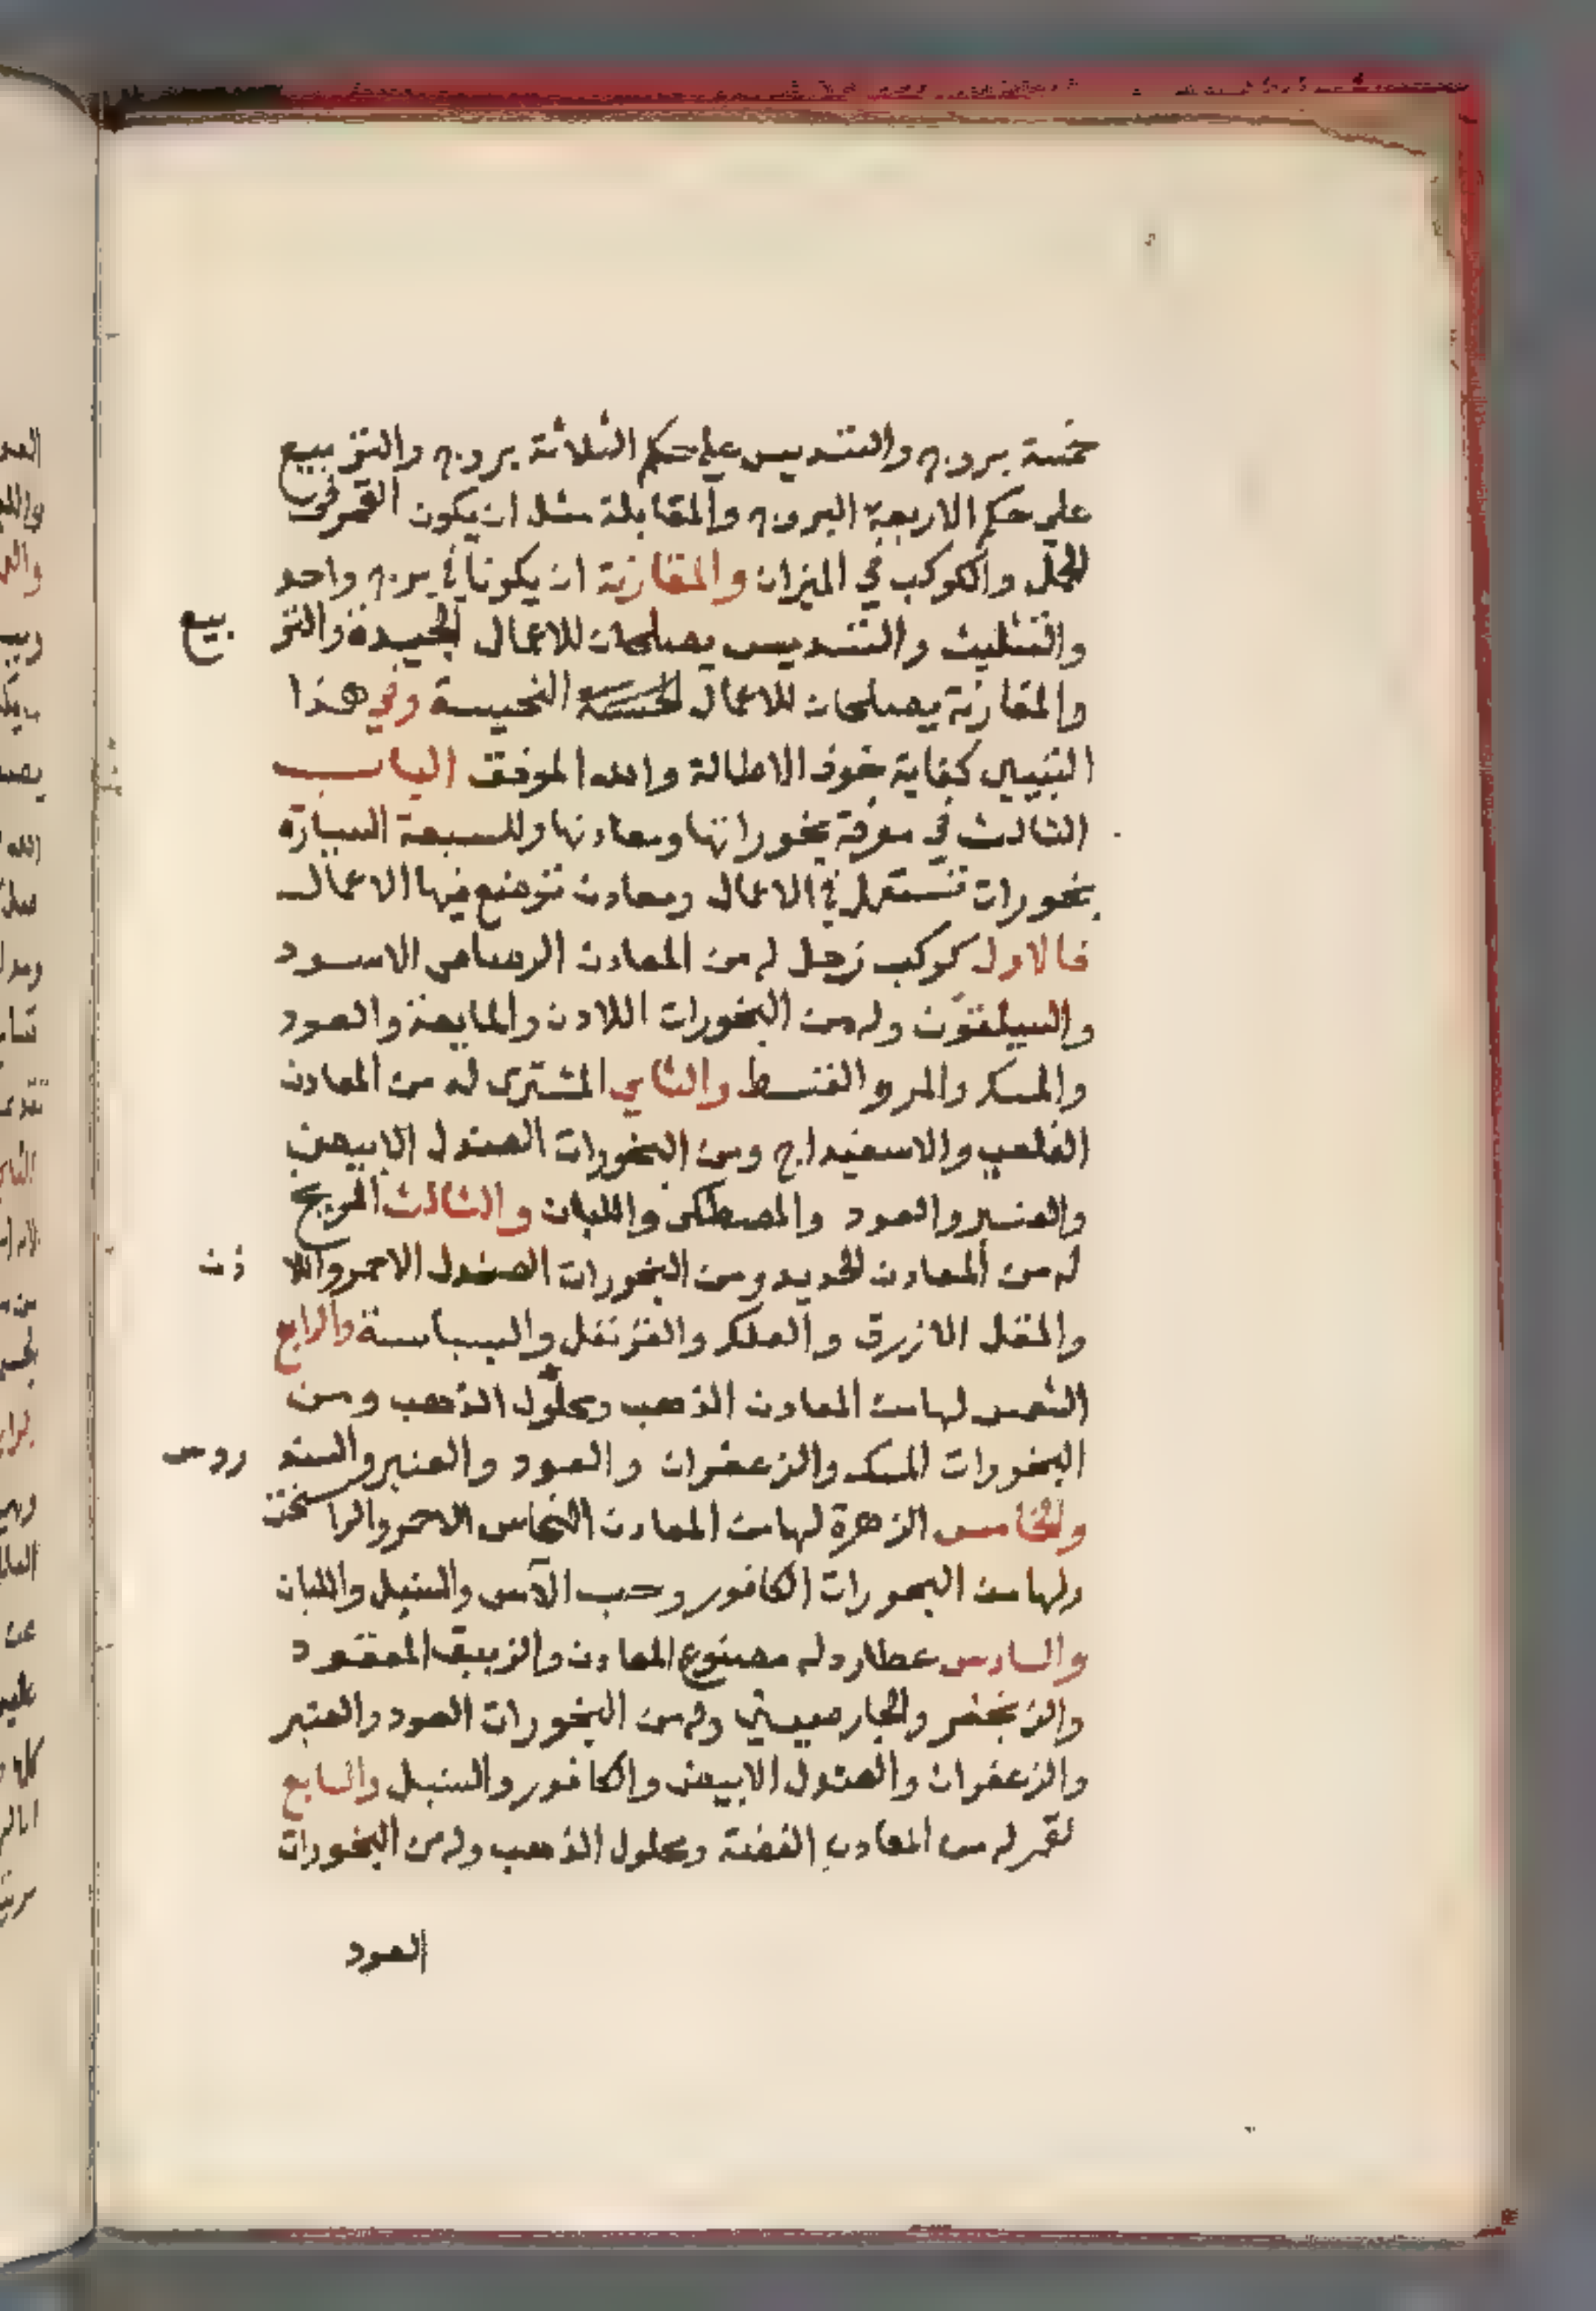 خمسة بروج والتسديس على حكم الثلاثة بروج والتربيع
على حكم الاربعة البروج والمقابلة مثل ان يكون القمر في
الحمل والكوكب في الميزان والمقارنة ان يكونا في برج واحد
والتثليث والتسديس يصلحان للاعمال الجيدة والتربيع
والمقارنة يصلحان للاعمال النحيسة وفي هذا
التبيين كفاية خوف الاطالة والله الموفق الباب
الثالث في معرفة بخوراتها ومعادنها وللسبعة السيارة
بخورات تستعمل في الاعمال ومعادن توضع فيها الاعمال
فالاول كوكب زحل له من المعادن الرصاص الاسود
والسيلقون وله من البخورات اللادن والمايعة والعود
والمسك والمر والقسط والثاني المشترى له من المعادن
القلعي والاسفيداج ومن البخورات الصندل الابيض
والعنبر والعود والمصطكى واللبان والثالث المريخ
له من المعادن الحديد ومن البخورات الصندل الاحمر واللاذن
والمقل الازرق والعلك والقرنفل والبسباسة والرابع
الشمس لها من المعادن الذهب ومحلول الذهب ومن
البخورات المسك والزعفران والعود والعنبر والسندروس
والخامس الزهرة لها من المعادن النحاس الاحمر والراسخت
ولها من البخورات الكافور وحب الآس والسنبل واللبان
والسادس عطارد له مصنوع المعادن والزيبق المعقود
والزنجفر والخارصيني وله من البخورات العود والعنبر
والزعفران والصندل الابيض والكافور والسنبل والسابع
لقمر له من المعادن الفضة ومحلول الذهب وله من البخورات
العود